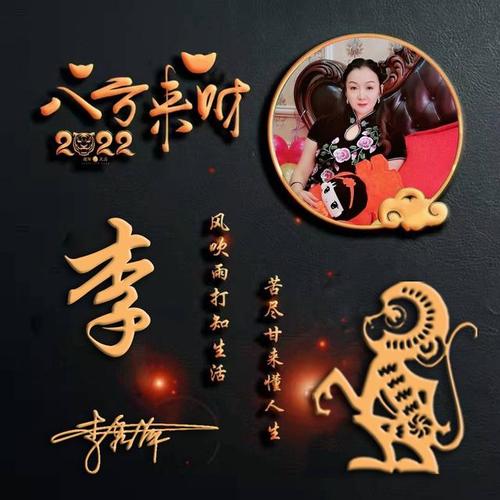 八方来财
2022
李
风吹雨打知生活
苦尽甘来懂人生